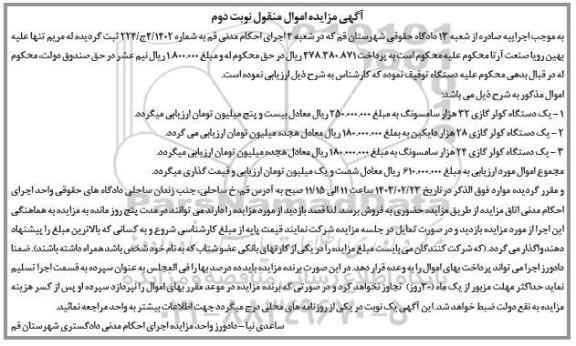 آگهی مزایده اموال منقول نوبت دوم
به موجب اجراییه صادره از شعبه ۱۳ دادگاه حقوقی شهرستان قم که در شعبه ۴ اجرای احکام مدنی قم به شماره ۴/۱۴۰۲ج/۲۲۴ ثبت گردیده له مریم تنها علیه
بهین رویا صنعت آرتا محکوم علیه محکوم است به پرداخت ۴۷۸.۳۸۰.۸۷۱ ریال در حق محکوم له و مبلغ ۱.۸۰۰.۰۰۰ ریال نیم عشر در حق صندوق دولت، محکوم
له در قبال بدهی محکوم علیه دستگاه توقیف نموده که کارشناس به شرح ذیل ارزیابی نموده است.
اموال مذکور به شرح ذیل می باشد:
۱ - یک دستگاه کولر گازی ۳۲ هزار سامسونگ به مبلغ ۲۵۰.۰۰۰.۰۰۰ ریال معادل بیست و پنج میلیون تومان ارزیابی میگردد.
۲ - یک دستگاه کولر گازی ۲۸ هزار دایکین به بملغ ۱۸۰.۰۰۰.۰۰۰ ریال معادل هجده میلیون تومان ارزیابی می گردد.
۳ - یک دستگاه کولر گازی ۲۴ هزار سامسونگ به مبلغ ۱۸۰.۰۰۰.۰۰۰ ریال معادل هجده میلیون تومان ارزیابی میگردد.
مجموع اموال مورد ارزیابی به مبلغ ۶۱۰.۰۰۰.۰۰۰ ریال معادل شصت و یک میلیون تومان ارزیابی و قیمت گذاری میگردد.
و مقرر گردیده موارد فوق الذکر در تاریخ ۱۴۰۳/۰۲/۲۳ ساعت ۱۱ الی ۱۱/۱۵ صبح به آدرس قم، خ ساحلی، جنب زندان ساحلی دادگاه های حقوقی واحد اجرای
احکام مدنی اتاق مزایده از طریق مزایده حضوری به فروش برسد. لذا قصد بازدید از مورد مزایده را دارند می توانند در مدت پنج روز مانده به مزایده به هماهنگی
این اجرا از مورد مزایده بازدید و در صورت تمایل در جلسه مزایده شرکت نمایند قیمت پایه از مبلغ کارشناسی شروع و به کسانی که بالاترین مبلغ را پیشنهاد
دهند واگذار می گردد. (که شرکت کنندگان می بایست مبلغ مزایده را در یکی از کارتهای بانکی عضو شتاب که به نام خود شخص باشد همراه داشته باشند). ضمنا
دادورز اجرا می تواند پرداخت بهای اموال را به وعده قرار دهد. در این صورت برنده مزایده باید ده درصد بها را فی المجلس به عنوان سپرده به قسمت اجرا تسلیم
نماید حداکثر مهلت مزبور از یک ماه (۳۰روز) تجاوز نخواهد کرد و در صورتی که برنده مزایده در موعد مقرر بهای اموال را نپردازد سپرده او پس از کسر هزینه
مزایده به نفع دولت ضبط خواهد شد. این آگهی یک نوبت در یکی از روزنامه های محلی درج میگردد جهت اطلاعات بیشتر به واحد مراجعه نمائید.
ساعدی نیا - دادورز واحد مزایده اجرای احکام مدنی دادگستری شهرستان قم
ParsNamadData
۰۲۱-۸۸۳۴۹۶۷۰-۵